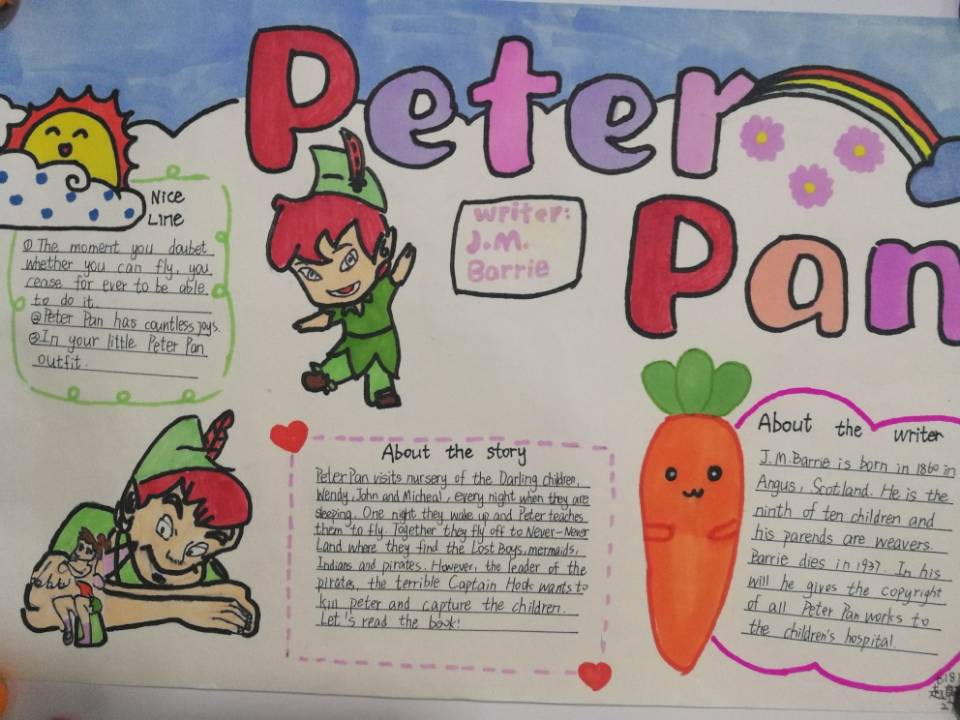 Peter
Pan
Nice
Line
writer:
J.M.
Barrie
① The moment you doubet
whether you can fly, you
cease for ever to be able
to do it.
② Peter Pan has countless joys.
③ In your little Peter Pan
outfit.
About the story
Peter Pan visits nursery of the Darling children,
Wendy, John and Micheal, every night when they are
sleeping. One night they wake up and Peter teaches
them to fly. Together they fly off to Never-Never
Land where they find the Lost Boys, mermaids,
Indians and pirates. However, the leader of the
pirates, the terrible Captain Hook wants to
kill peter and capture the children.
Let's read the book!
About the writer
J.M.Barrie is born in 1860 in
Angus, Scotland. He is the
ninth of ten children and
his parends are weavers.
Barrie dies in 1937. In his
will he gives the copyright
of all Peter Pan works to
the children's hospital.